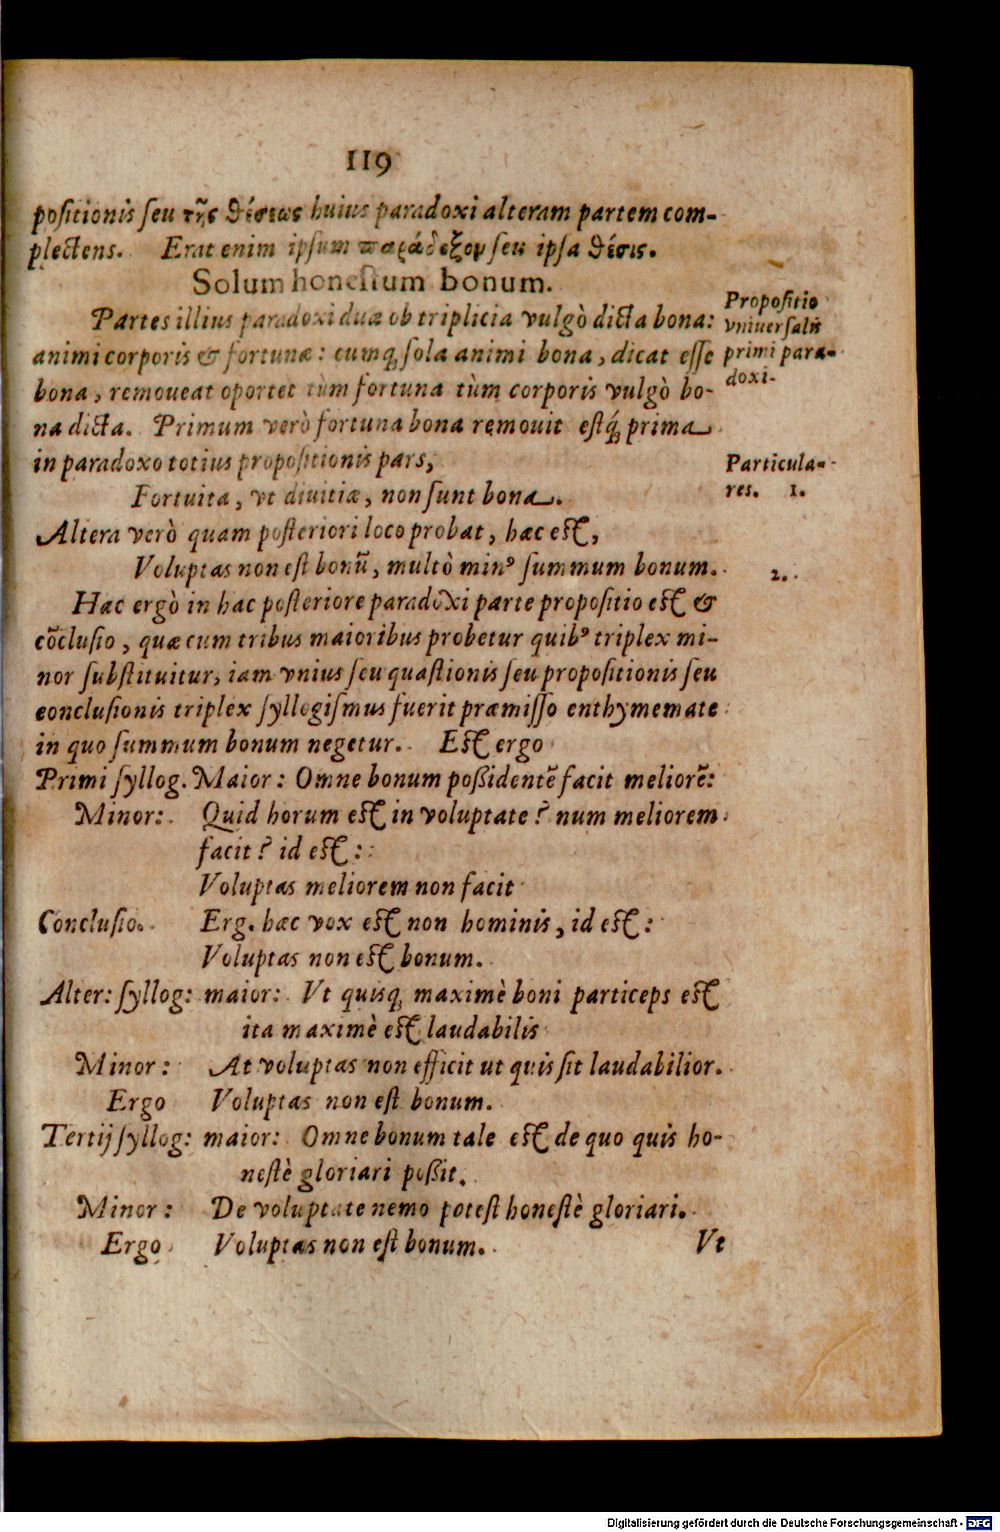 119
positionis seu τῆς θέσεως huius paradoxi alteram partem com-
plectens. Erat enim ipsum παράδοξον seu ipsa θέσις.
Solum honestum bonum.
Partes illius paradoxi duæ ob triplicia vulgò dicta bona:
animi corporis & fortunæ: cumq́; sola animi bona, dicat esse
bona, remoueat oportet tùm fortuna tùm corporis vulgò bo-
na dicta. Primum verò fortuna bona remouit estq́; prima
in paradoxo totius propositionis pars,
Fortuita, vt diuitiæ, non sunt bona.
Altera verò quam posteriori loco probat, hæc est,
Voluptas non est bonũ, multò minꝰ summum bonum.
Hæc ergò in hac posteriore paradoxi parte propositio est &
cõclusio, quæ cum tribus maioribus probetur quibꝰ triplex mi-
nor substituitur, iam vnius seu quæstionis seu propositionis seu
conclusionis triplex syllogismus fuerit præmisso enthymemate
in quo summum bonum negetur. Est ergo
Primi syllog. Maior: Omne bonum possidentẽ facit meliorẽ:
Minor: Quid horum est in voluptate? num meliorem
facit? id est:
Voluptas meliorem non facit
Conclusio. Erg. hæc vox est non hominis, id est:
Voluptas non est bonum.
Alter: syllog: maior: Vt quisq; maximè boni particeps est
ita maximè est laudabilis
Minor: At voluptas non efficit ut quis sit laudabilior.
Ergo Voluptas non est bonum.
Tertij syllog: maior: Omne bonum tale est de quo quis ho-
nestè gloriari possit.
Minor: De voluptate nemo potest honestè gloriari.
Ergo Voluptas non est bonum.
Vt
Propositio
vniuersalis
primi para-
doxi.
Particula-
res. 1.
2.
Digitalisierung gefördert durch die Deutsche Forschungsgemeinschaft - DFG